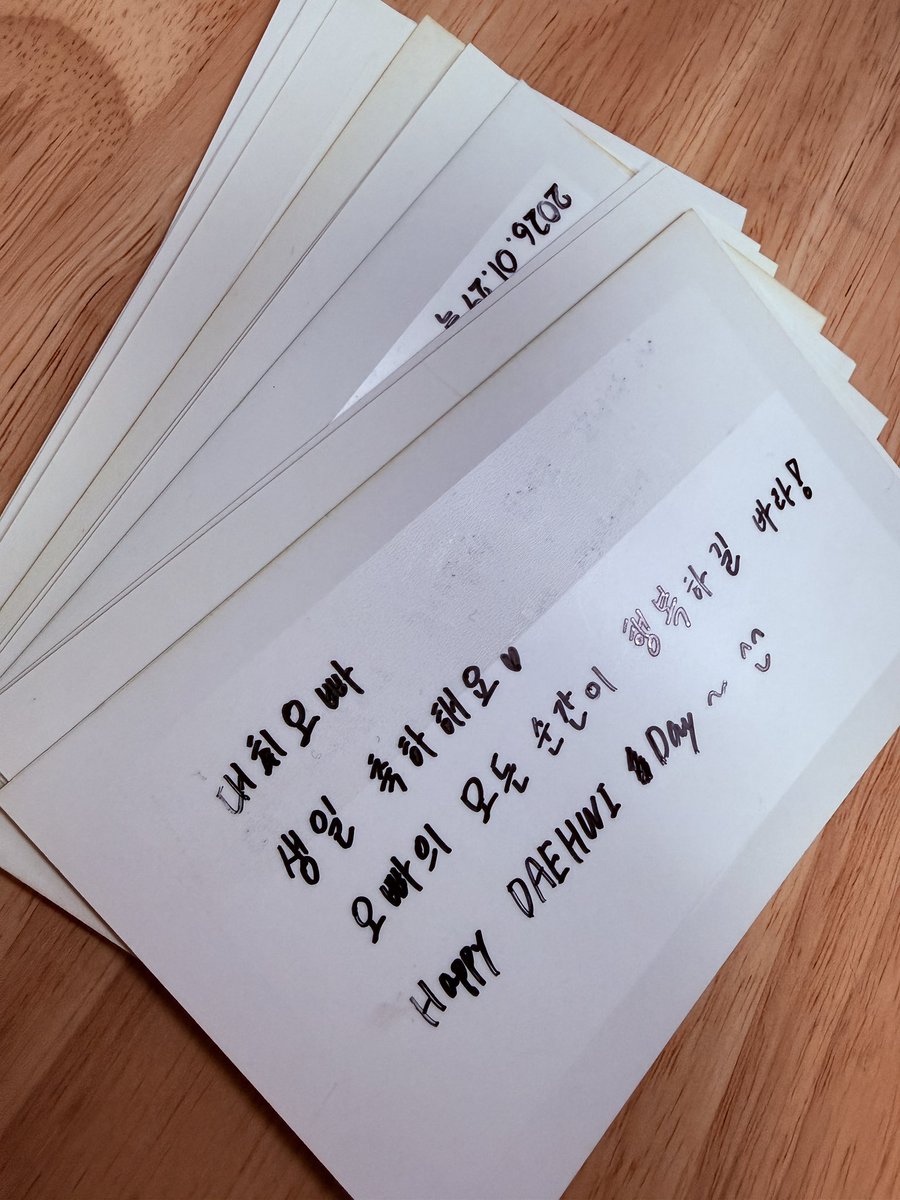 2026.01.27
대휘오빠
생일 축하해요♥
오빠의 모든 순간이 행복하길 바라!
Happy DAEHWI Day~ ^^